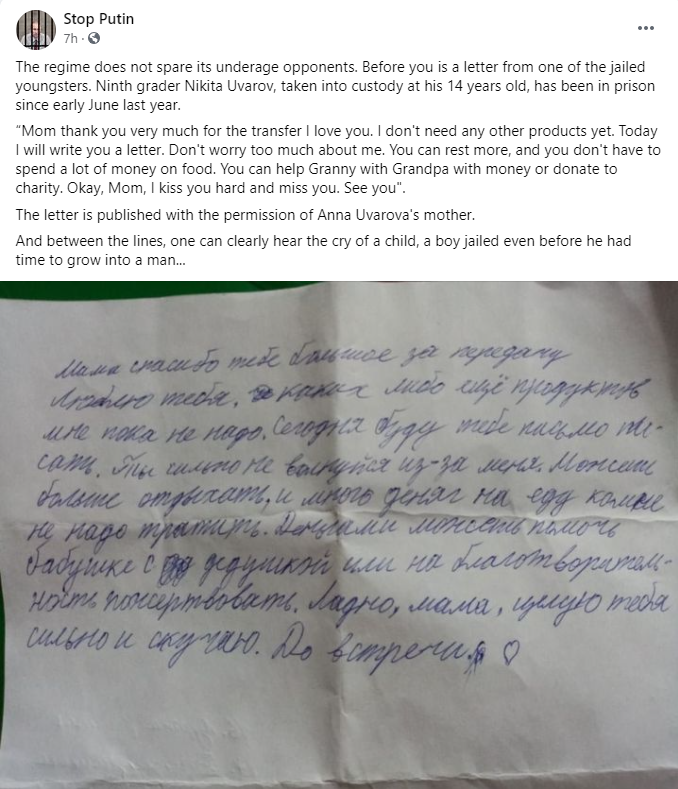 Stop Putin
7h ·
The regime does not spare its underage opponents. Before you is a letter from one of the jailed
youngsters. Ninth grader Nikita Uvarov, taken into custody at his 14 years old, has been in prison
since early June last year.
“Mom thank you very much for the transfer I love you. I don't need any other products yet. Today
I will write you a letter. Don't worry too much about me. You can rest more, and you don't have to
spend a lot of money on food. You can help Granny with Grandpa with money or donate to
charity. Okay, Mom, I kiss you hard and miss you. See you".
The letter is published with the permission of Anna Uvarova's mother.
And between the lines, one can clearly hear the cry of a child, a boy jailed even before he had
time to grow into a man...
Мама спасибо тебе большое за передачу
Люблю тебя, каких либо ещё продуктов
мне пока не надо. Сегодня буду тебе письмо пи-
сать. Ты сильно не волнуйся из-за меня. Можешь
больше отдыхать, и много денег на еду
не надо тратить. Деньгами можешь помочь
бабушке с дедушкой или на благотворитель-
ность пожертвовать. Ладно, мама, целую тебя
сильно и скучаю. До встречи. ♡